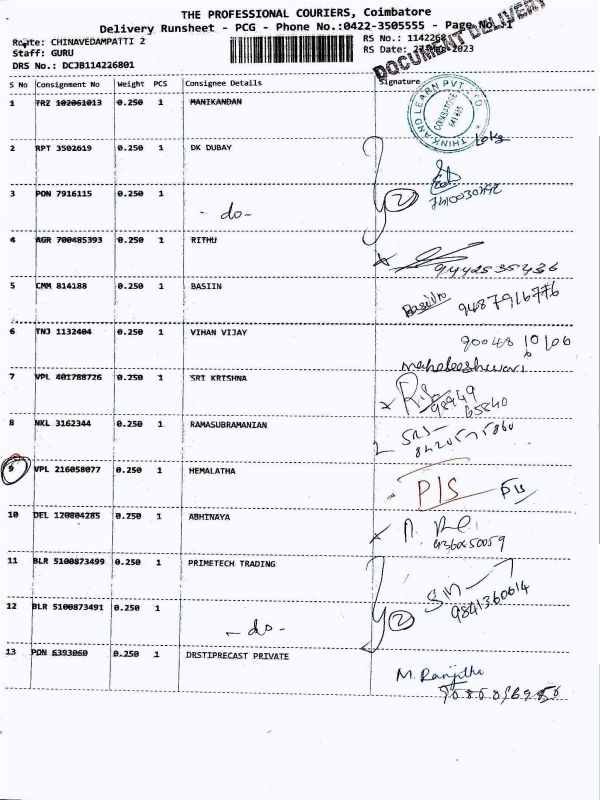 THE PROFESSIONAL COURIERS, Coimbatore
Delivery Runsheet - PCG - Phone No.:0422-3505555 - Page No.:1
Route: CHINAVEDAMPATTI 2
RS No.: 1142268
Staff: GURU
RS Date: 27 Mar 2023
DRS No.: DCJB114226801
DOCUMENT DELIVERY
S No Consignment No Weight PCS Consignee Details Signature
1 TRZ 102061013 0.250 1 MANIKANDAN
THINK AND LEARN PVT. LTD. COIMBATORE
2 RPT 3502619 0.250 1 DK DUBAY
3 PON 7916115 0.250 1
- do -
2
4 AGR 700485393 0.250 1 RITHU
9442535436
5 CMM 814188 0.250 1 BASIIN
9487916776
6 TNJ 1132404 0.250 1 VIHAN VIJAY
7 VPL 401788726 0.250 1 SRI KRISHNA
98949
65840
8 NKL 3162344 0.250 1 RAMASUBRAMANIAN
9 VPL 216058077 0.250 1 HEMALATHA
P/S P/S
10 DEL 120804285 0.250 1 ABHINAYA
11 BLR 5100873499 0.250 1 PRIMETECH TRADING
9841360614
12 BLR 5100873491 0.250 1
- do -
2
13 PON 6393060 0.250 1 DRSTIPRECAST PRIVATE
M. Ranjitha